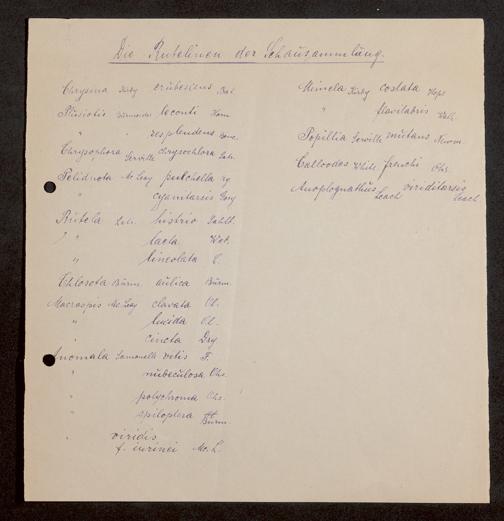 Die Rutelinen der Schausammlung.
Chrysina Kirby erubescens Bat.
Plusiotis Burmeister leconti Horn
" " resplendens Bouc.
Chrysophora Serville chrysochlora Latr.
Pelidnota Mc Leay pulchella
" cyanitarsis Gory
Rutela Latr. histrio Sahlb.
" " laeta Web.
" lineolata L.
Chlosota Burm. aulica Burm.
Macraspis Mc Leay clavata Ol.
" lucida Ol.
" cincta Dry
Anomala Samouelle vitis F.
" nubeculosa Ohs.
" polychroma Ohs.
" spiloptera Burm.
" viridis
f. Mc. L.
Mimela Kirby costata Hope
" flavilabris
Popillia Serville mutans Newm
Calloodes White frenchi Ohs.
Anoplognathus Leach viriditarsis Leach